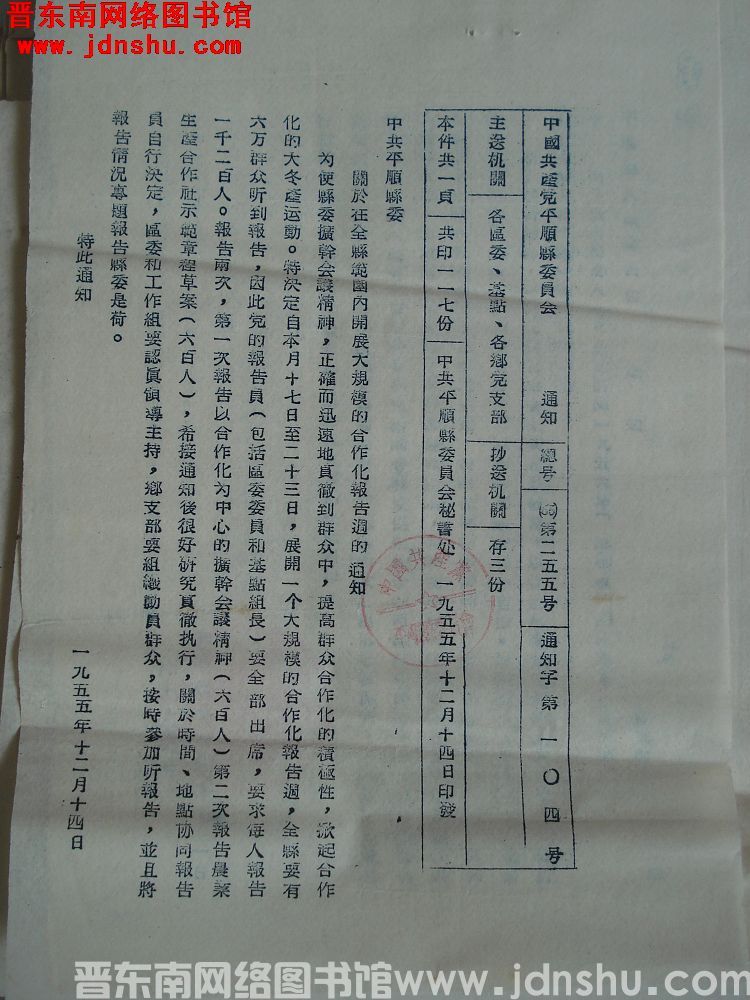 晋东南网络图书馆
www.jdnshu.com
中國共産党平順縣委員会 通知 總号 (55)第二五五号 通知字第一〇四号
主送机關 各區委、基點、各鄉党支部 抄送机關 存三份
本件共一頁 共印一一七份 中共平順縣委員会秘書处 一九五五年十二月十四日印發
中共平順縣委
關於在全縣範圍內開展大規模的合作化報告週的通知
为使縣委擴幹会議精神，正確而迅速地貫徹到群众中，提高群众合作化的積極性，掀起合作
化的大冬産运動。特決定自本月十七日至二十三日，展開一个大規模的合作化報告週，全縣要有
六万群众听到報告，因此党的報告員（包括區委委員和基點組長）要全部出席，要求每人報告
一千二百人。報告兩次，第一次報告以合作化为中心的擴幹会議精神（六百人）第二次報告農業
生產合作社示範章程草案（六百人），希接通知後很好研究貫徹执行，關於時間、地點協同報告
員自行決定，區委和工作組要認眞領導主持，鄉支部要組織動員群众，按時參加听報告，並且將
報告情况專題報告縣委是荷。
特此通知
一九五五年十二月十四日
中國共産党
晋东南网络图书馆www.jdnshu.com